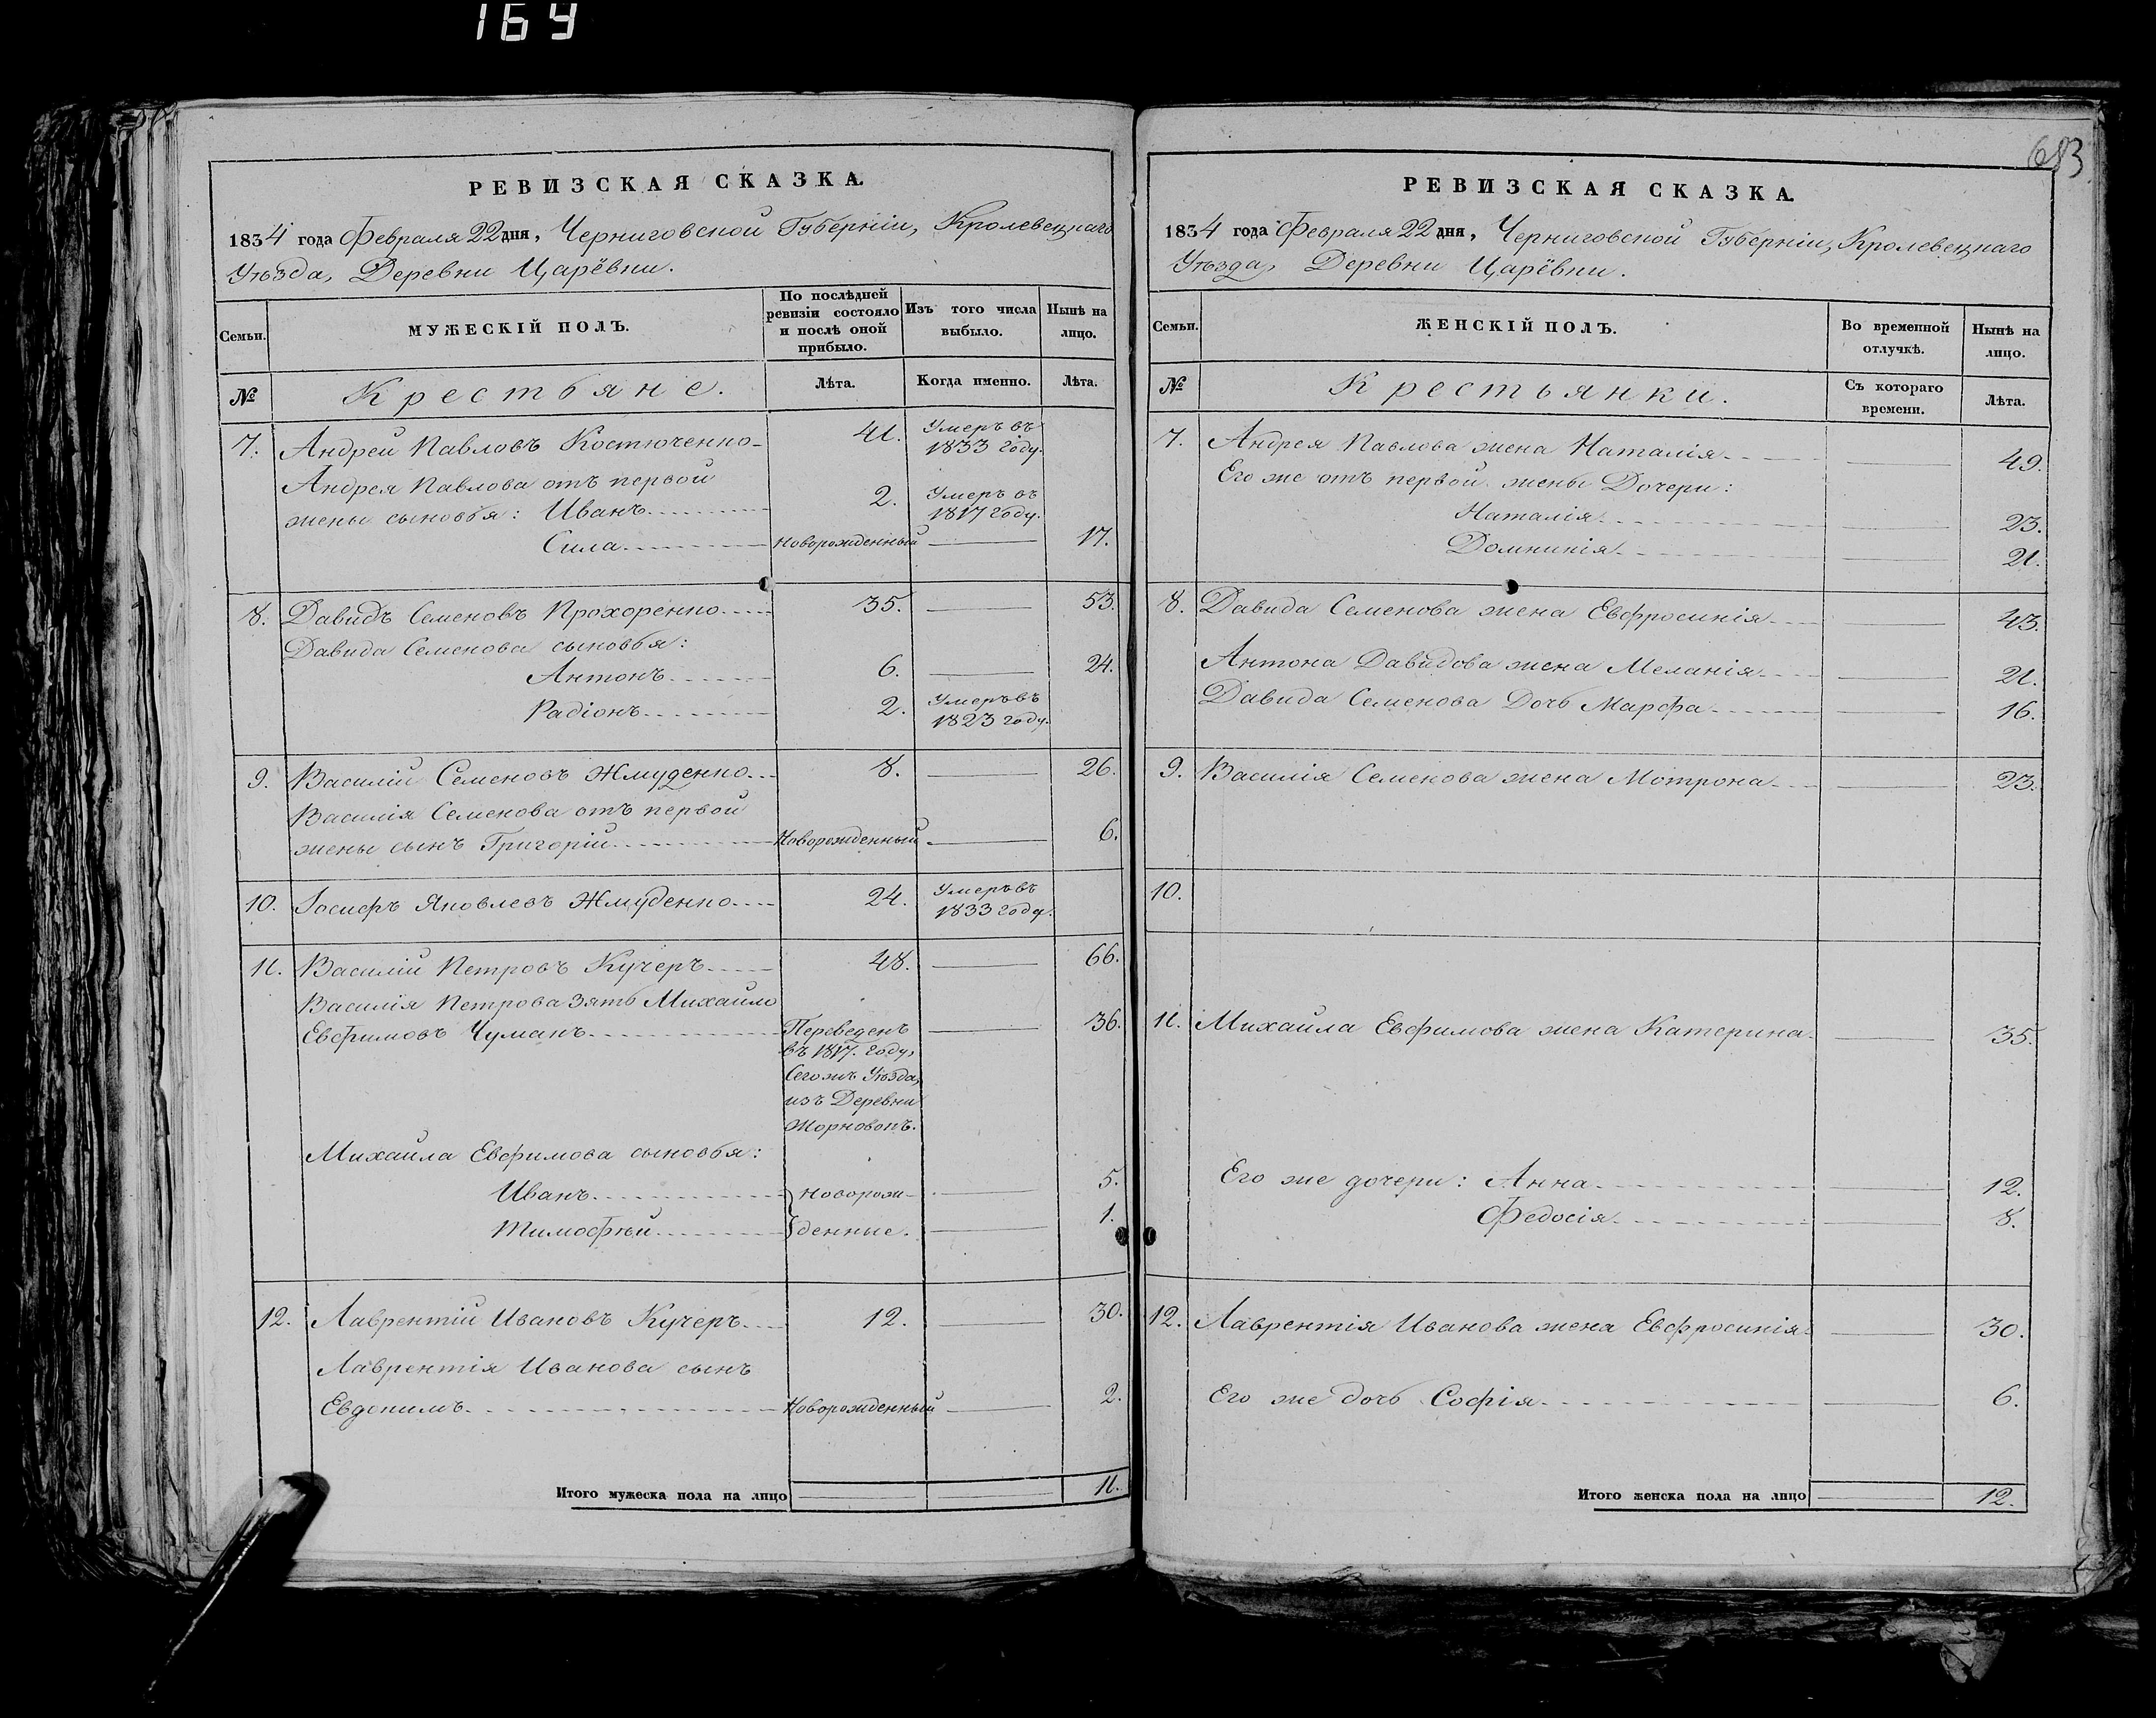 169
683
РЕВИЗСКАЯ СКАЗКА.
1834 года Февраля 22 дня, Черниговской Губерніи, Кролевецкаго
Уѣзда, Деревни Царёвки.
Семьи.
МУЖЕСКІЙ ПОЛЪ.
По послѣдней ревизіи состояло и послѣ оной прибыло.
Изъ того числа выбыло.
Нынѣ на лицо.
№
Крестьяне.
Лѣта.
Когда именно.
Лѣта.
7. Андрей Павловъ Костюченко 41. Умеръ въ 1833 году.
Андрея Павлова отъ первой
жены сыновья: Иванъ 2. Умеръ въ 1817 году.
Сила Новорожденный 17.
8. Давидъ Семеновъ Прохоренко 35. 53.
Давида Семенова сыновья:
Антонъ 6. 24.
Радіонъ 2. Умеръ въ 1823 году.
9. Василій Семеновъ Жмуденко 8. 26.
Василія Семенова отъ первой
жены сынъ Григорій Новорожденный 6.
10. Іосифъ Яковлевъ Жмуденко 24. Умеръ въ 1833 году.
11. Василій Петровъ Кучеръ 48. 66.
Василія Петрова Зять Михайло
Евфимовъ Чуманъ Переведенъ 36.
въ 1817. году,
Сего жъ Уѣзда,
изъ Деревни
Жорновокъ.
Михайла Евфимова сыновья:
Иванъ новорож- 5.
Тимофѣй денные. 1.
12. Лаврентій Ивановъ Кучеръ 12. 30.
Лаврентія Иванова сынъ
Евдокимъ Новорожденный 2.
Итого мужеска пола на лицо 11.
РЕВИЗСКАЯ СКАЗКА.
1834 года Февраля 22 дня, Черниговской Губерніи, Кролевецкаго
Уѣзда, Деревни Царёвки.
Семьи.
ЖЕНСКІЙ ПОЛЪ.
Во временной отлучкѣ.
Нынѣ на лицо.
№
Крестьянки.
Съ котораго времени.
Лѣта.
7. Андрея Павлова жена Наталія 49.
Его же отъ первой жены Дочери:
Наталія 23.
Домникія 21.
8. Давида Семенова жена Евфросинія 43.
Антона Давидова жена Меланія 21.
Давида Семенова Дочь Марфа 16.
9. Василія Семенова жена Мотрона 23.
10.
11. Михайла Евфимова жена Катерина 35.
Его же дочери: Анна 12.
Федосія 8.
12. Лаврентія Иванова жена Евфросинія 30.
Его же дочь Софія 6.
Итого женска пола на лицо 12.